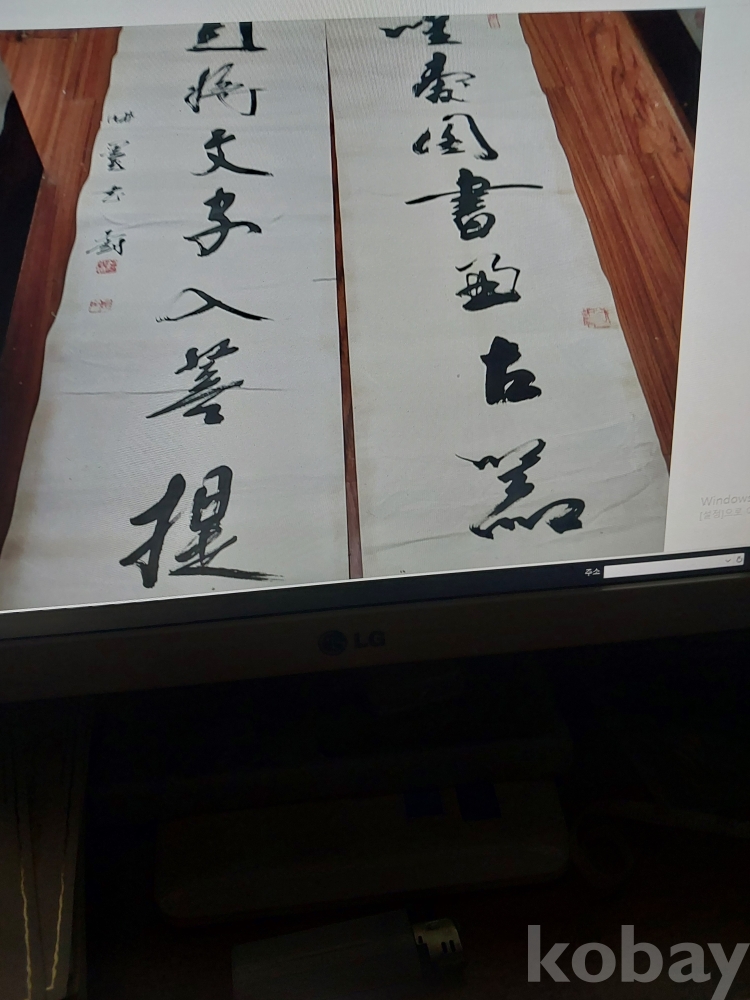 唯愛圖書兼古器
將文字入菩提
Windows
주소
LG
kobay